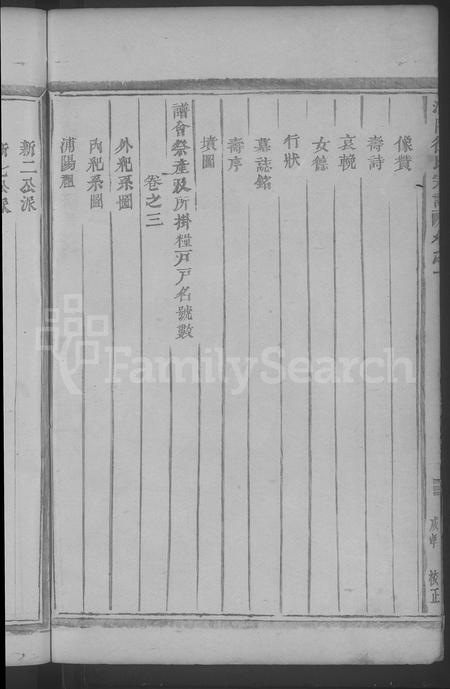 像贊
壽詩
哀輓
女德
行狀
墓誌銘
壽序
墳圖
譜會祭產及所掛糧戸戸名號數
卷之三
外紀系圖
內紀系圖
浦陽
新二公派
校正
FamilySearch